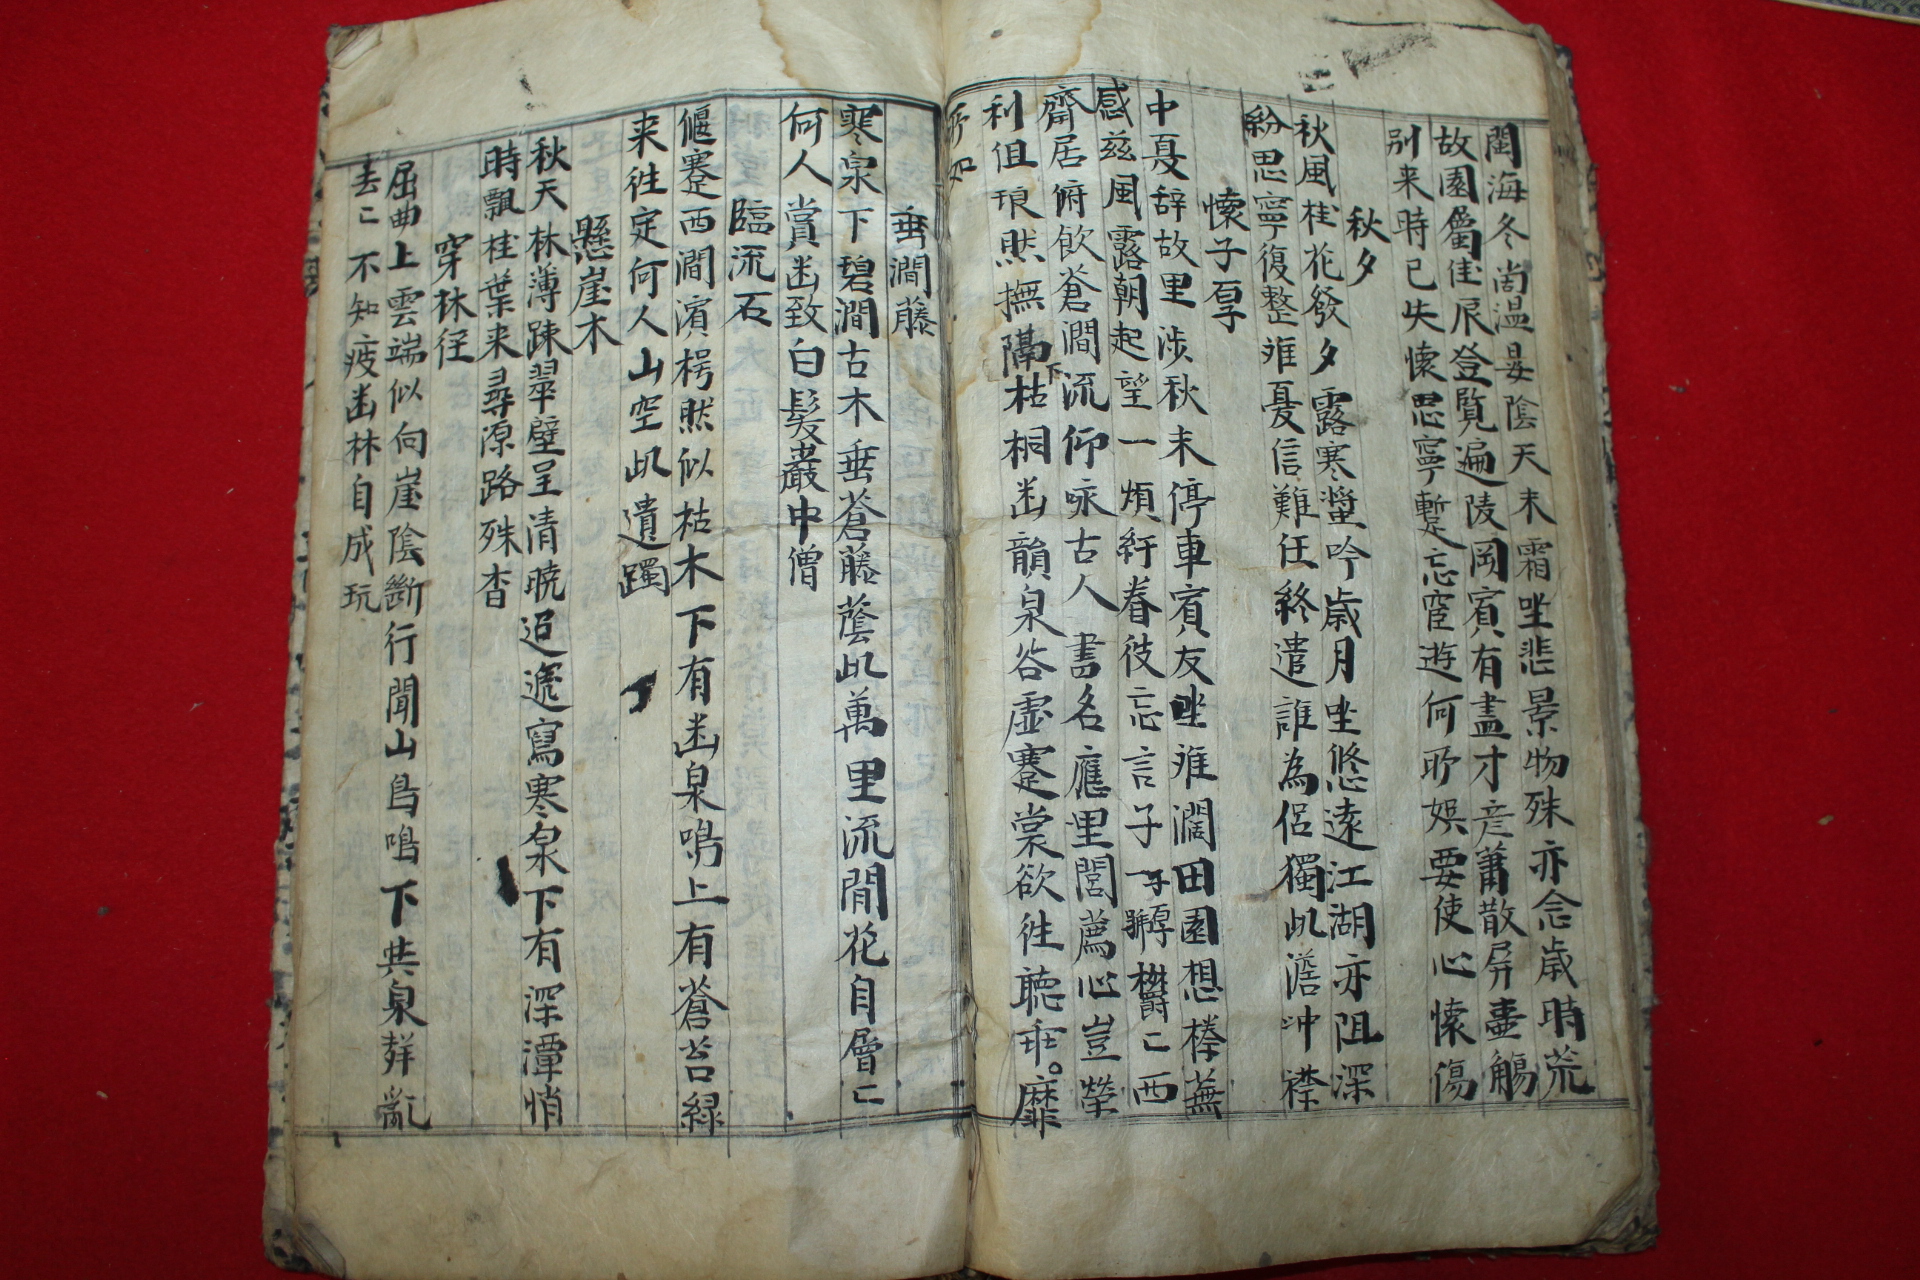 閩海冬尚温晏陰天未霜坐悲景物殊亦念歲時荒
故園屬佳辰登覧遍陵岡賓有盡才彦蕭散屏壷觴
別来時已失懷思寧暫忘宦遊何所娯要使心懷傷
秋夕
秋風桂花發夕露寒螀吟歳月坐悠遠江湖亦阻深
紛思寧復整離憂信難任終遣誰為侶獨此澹冲襟
懷子厚
中夏辞故里涉秋未停車賓友坐離濶田園想榛蕪
感兹風露朝起望一煩紆眷彼忘言子 二西
齋居俯飲蒼澗流仰咏古人書名應里閭薦心豈榮
利俎琅然撫隔枯桐幽韻泉谷虚蹇裳欲往聽乖。靡
所如
垂澗藤
寒泉下碧澗古木垂蒼藤蔭此萬里流閒花自層二
何人賞幽致白髪巖中僧
臨流石
偃蹇西澗濱楞然似枯木下有幽泉鳴上有蒼苔緑
来往定何人山空此遺躅
懸崖木
秋天林薄踈翠壁呈清暁迢遞寫寒泉下有深潭悄
時飄桂葉来尋源路殊杳
穿林径
屈曲上雲端似向崖陰斷行聞山鳥鳴下共泉聲亂
去二不知疲幽林自成玩